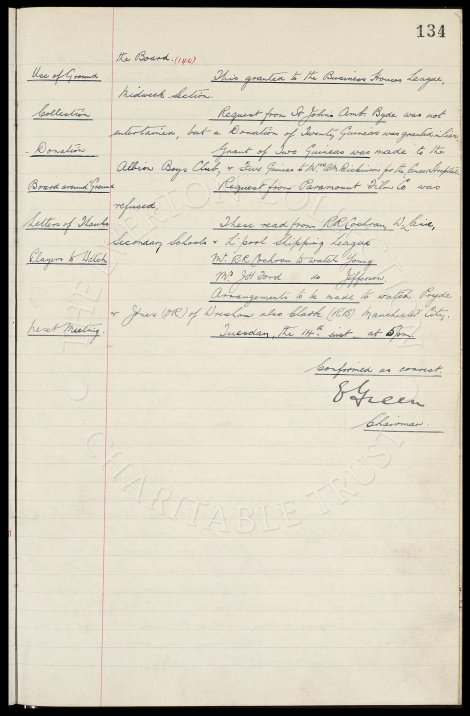 134
the Board. (146)
Use of Ground This granted to the Business Houses League,
Midweek Section.
Collection Request from St John's Amb. Bgde was not
entertained, but a Donation of Twenty Guineas was granted in lieu.
Donation Grant of Two Guineas was made to the
Albion Boys Club, & Five Guineas to Dickinson for the Cancer Hospital.
Board around Ground Request from Paramount Film Co was
refused.
Letters of Thanks These read from R.R. Cochran,
Secondary Schools & L'pool Shipping League
Players to Watch Mr. R.R. Cochran to watch Young
Mr. J.H. Ford do Jefferson
Arrangements to be made to watch Pryde
& Jones (OR) of Wrexham also Clark (RB) Manchester City.
Next Meeting. Tuesday, the 14th inst. at 5pm
Confirmed as correct.
E Green
Chairman.
THE EVERTON COLLECTION
CHARITABLE TRUST